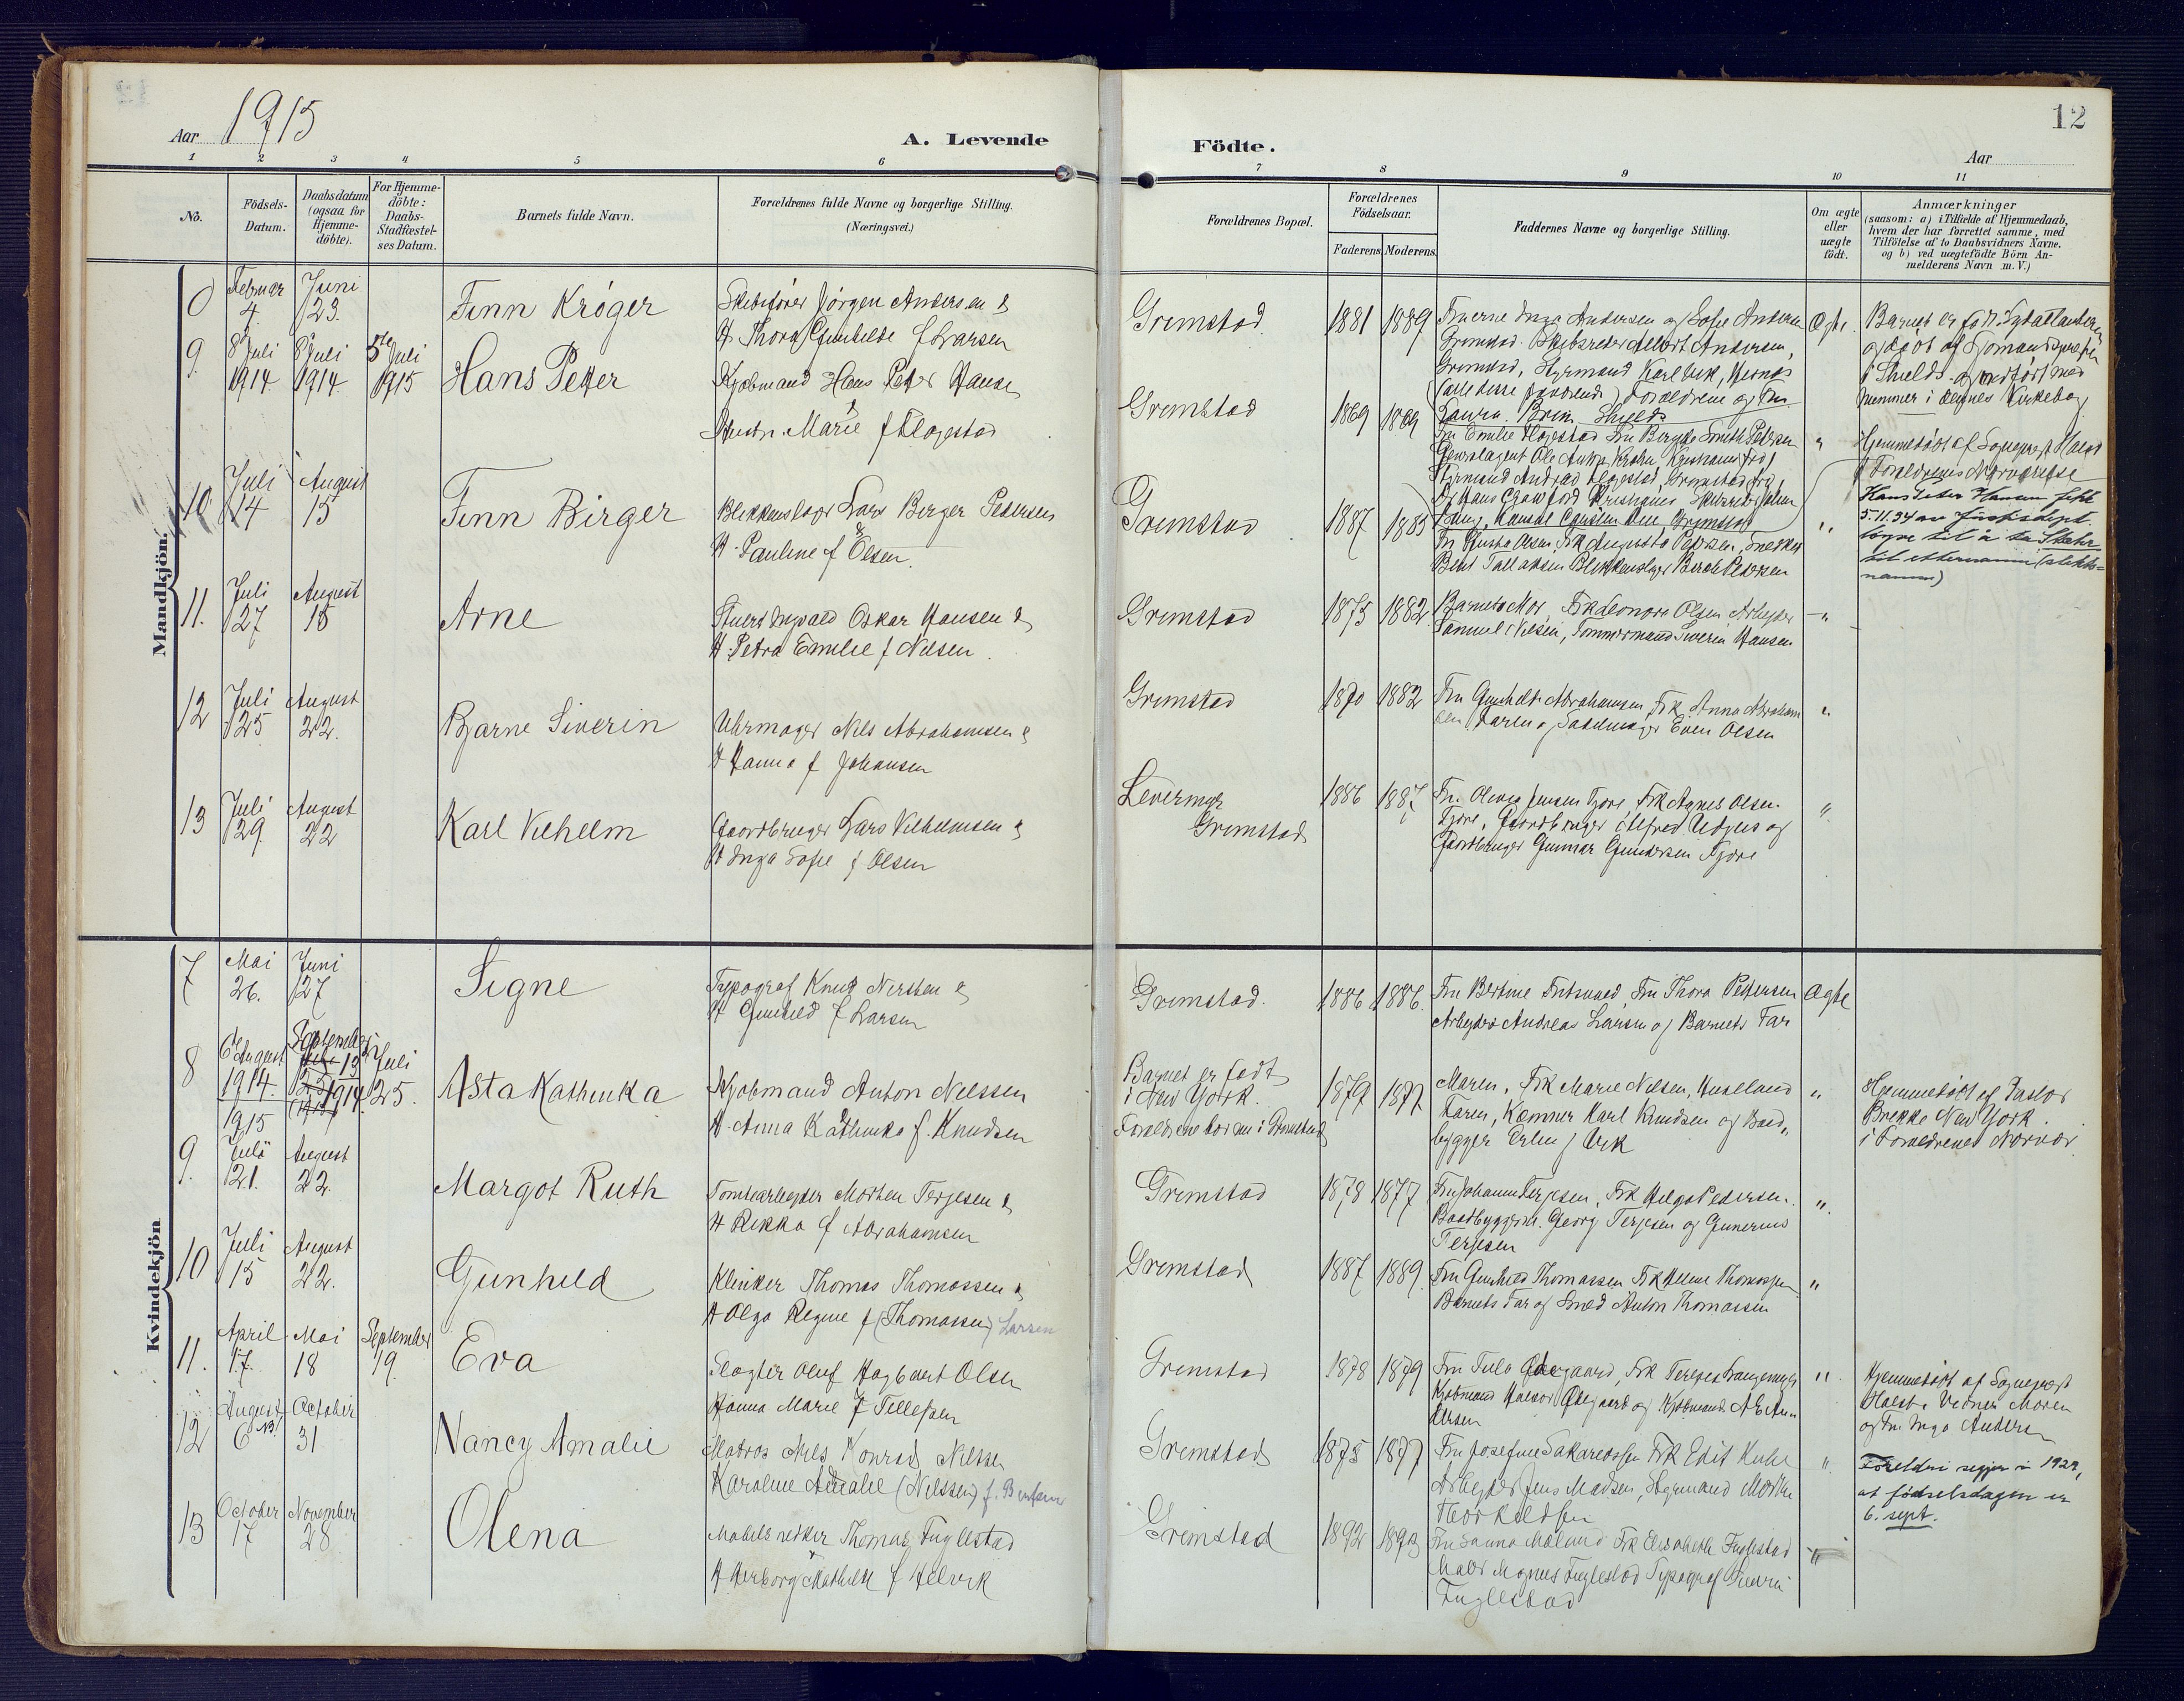 12
Aar 1915
A. Levende
Födte.
Aar
1 2 3 4 5 6
7 8 9 10 11
No.
Födsels-
Datum.
Daabsdatum
(ogsaa for
Hjemme-
döbte).
For Hjemme-
döbte:
Daabs-
Stadfæstel-
ses Datum.
Barnets fulde Navn.
Forældrenes fulde Navne og borgerlige Stilling.
(Næringsvei.)
Forældrenes Bopæl.
Forældrenes
Födselsaar.
Faderens Moderens
Faddernes Navne og borgerlige Stilling.
Om ægte
eller
uægte
födt.
Anmærkninger
(saasom: a) i Tilfælde af Hjemmedaab,
hvem der har forrettet samme, med
Tilföielse af to Daabsvidners Navne.
og b) ved uægtefödte Börn An-
melderens Navn m. V.)
Mandkjön.
0
Februar
4.
Juni
23.
Finn Kröger
Skibsfører Jörgen Andersen &
H. Thora Gunhilde f Larsen
Grimstad.
1881 1889
Fruerne Inga Andersen og Sofie Andersen
Grimstad. Skibsreder Albert Andersen,
Grimstad, Styrmand Karl Birk,
Forældrene og Fru
Laura Shields
Ægte.
Barnet er födt
og döbt af Sjømandspresten
i Shields og indført med
nummer i dennes Kirkebog
9.
8 Juli
1914
8 Juli
1914
5te Juli
1915
Hans Petter
Kjøbmand Hans Peter Hansen
&
Hustr. Marie f Flogestad
Grimstad
1869 1889
Fru Emilie Flogestad Fru Smith Petersen
Generalagent Ole
Styrmand Andreas Flogestad, Grimstad
Grimstad
"
Hjemmedöbt af Sogneprest Holst
i Forældrenes Nærværelse
Hans Peter Hansen fekk
5.11.34 av Justisdept.
løyve til å ta Stæhr
til etternamn (slekts-
namn)
10
Juli
14
August
15
Finn Birger
Blikkenslager Lars Berger Pedersen
&
H. Pauline f Olsen.
Grimstad
1887 1885
Fru Olsen, Frk Augusta Pedersen, Snedker
Bent Tallaksen Blikkenslager Pedersen
"
11.
Juli
27
August
15
Arne
Stuert Ingvald Oskar Hansen &
H. Petra Emilie f Nilsen
Grimstad
1875 1882
Barnets Mor, Frk Leonora Olsen Arbeyder
Samuel Nilsen, Tømmermand Severin Hansen
"
12
Juli
25
August
22.
Bjarne Siverin
Uhrmager Nils Abrahamsen &
H Hanna f Johansen
Grimstad
1870 1882
Fru Gunhilde Abrahamsen, Frk Anna Abraham
sen, Faren og Sadelmager Even Olsen
"
13
Juli
29.
August
22
Karl Vilhelm
Gaardbruger Lars Vilhelmsen &
H Inga Sofie f Olsen
Levermyr
Grimstad
1886 1887
Fru Olivia Jensen Fjære, Frk Agnes Olsen
Fjære, Gaardbruger Alfred og
Gaardbruger Gunnar Gundersen Fjære
"
Kvindekjön
7
Mai
26.
Juni
27
Signe
Typograf Knud Nersten &
H Gunhild f Larsen
Grimstad.
1886 1886.
Fru Bertine Fru Thora Pettersen
Arbeyder Andreas Larsen og Barnets Far
Ægte
8
6 August
1914
September
13
1914
Juli
25.
Asta Kathinka
Kjøbmand Anton Nilssen
&
H. Anna Kathinka f. Knudsen
Barnet er födt
i New York.
Forældrene bor nu i Grimstad
1879 1877
Moren, Frk Marie Nilsen,
Faren, Kemner Karl Knudsen og Baad
bygger Birk
"
Hjemmedöbt af Pastor
Brekke New York.
i Forældrenes Nærvær.
1915
9.
Juli
21.
August
22.
Margot Ruth
Tomtearbeyder Morten Terjesen &
H Rikka f Abrahamsen
Grimstad
1878 1877
Fru Johanne Terjesen, Frk Helga Pedersen
Baadbyggerm. Georg Terjesen og Gunerius
Terjesen
"
10
Juli
15
August
22.
Gunhild
Klinker Thomas Thomassen &
H Olga Regine f (Thomassen) Larsen
Grimstad
1887 1889
Fru Gunhild Thomassen Frk Helene Thomassen
Barnets Far og Smed Anton Thomassen
"
11.
April
17.
Mai
18
September
19.
Eva
Slagter Oluf Hagbart Olsen
Hanna Marie f Tellefsen
Grimstad
1878 1879
Fru Tulla Ødegaard, Frk Terese
Kjøbmand Halvor Ødegaard og Kjøbmand A E An
dersen
"
Hjemmedöbt af Sogneprest
Holst. Vidner Moren
og Fru Inga Andersen
12
August
6 NB!
October
31
Nancy Amalie
Matros Nils Konrad Nilssen
Karoline Amalie (Nilssen) f. Berntsen
Grimstad
1875 1877
Fru Josefine Sakariassen Frk Edit
Arbeyder Jens Madsen, Styrmand
Thorkildsen
"
Foreldri segjer i 1929,
at fødselsdagen er
6. sept.
13
October
17
November
28
Olena
Møbelsnedker Thomas Fuglestad
&
H Herborg Mathilde f Helvik
Grimstad
1892 1893
Fru Sanna Frk Elisabeth Fuglestad
Maler Magnus Fuglestad Typograf
Fuglestad
"